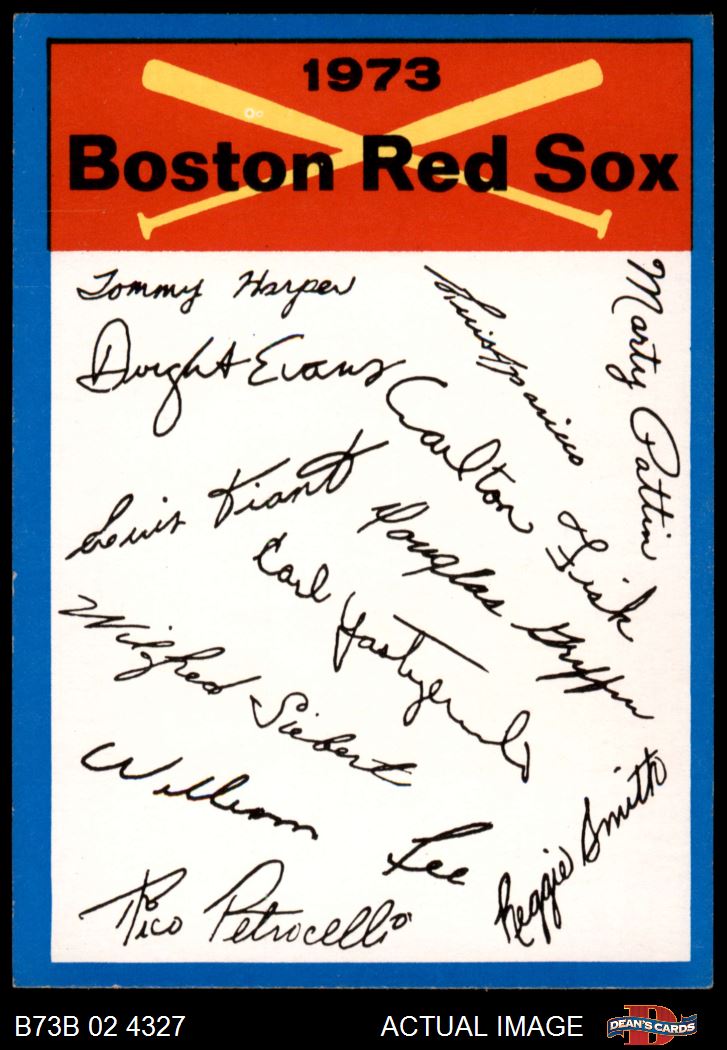 1973
Boston Red Sox
Tommy Harper
Luis Aparicio
Marty Pattin
Dwight Evans
Carlton Fisk
Luis Tiant
Douglas Griffin
Carl Yastrzemski
Wilfred Siebert
William Lee
Reggie Smith
Rico Petrocelli
B73B 02 4327
ACTUAL IMAGE
DEAN'S CARDS